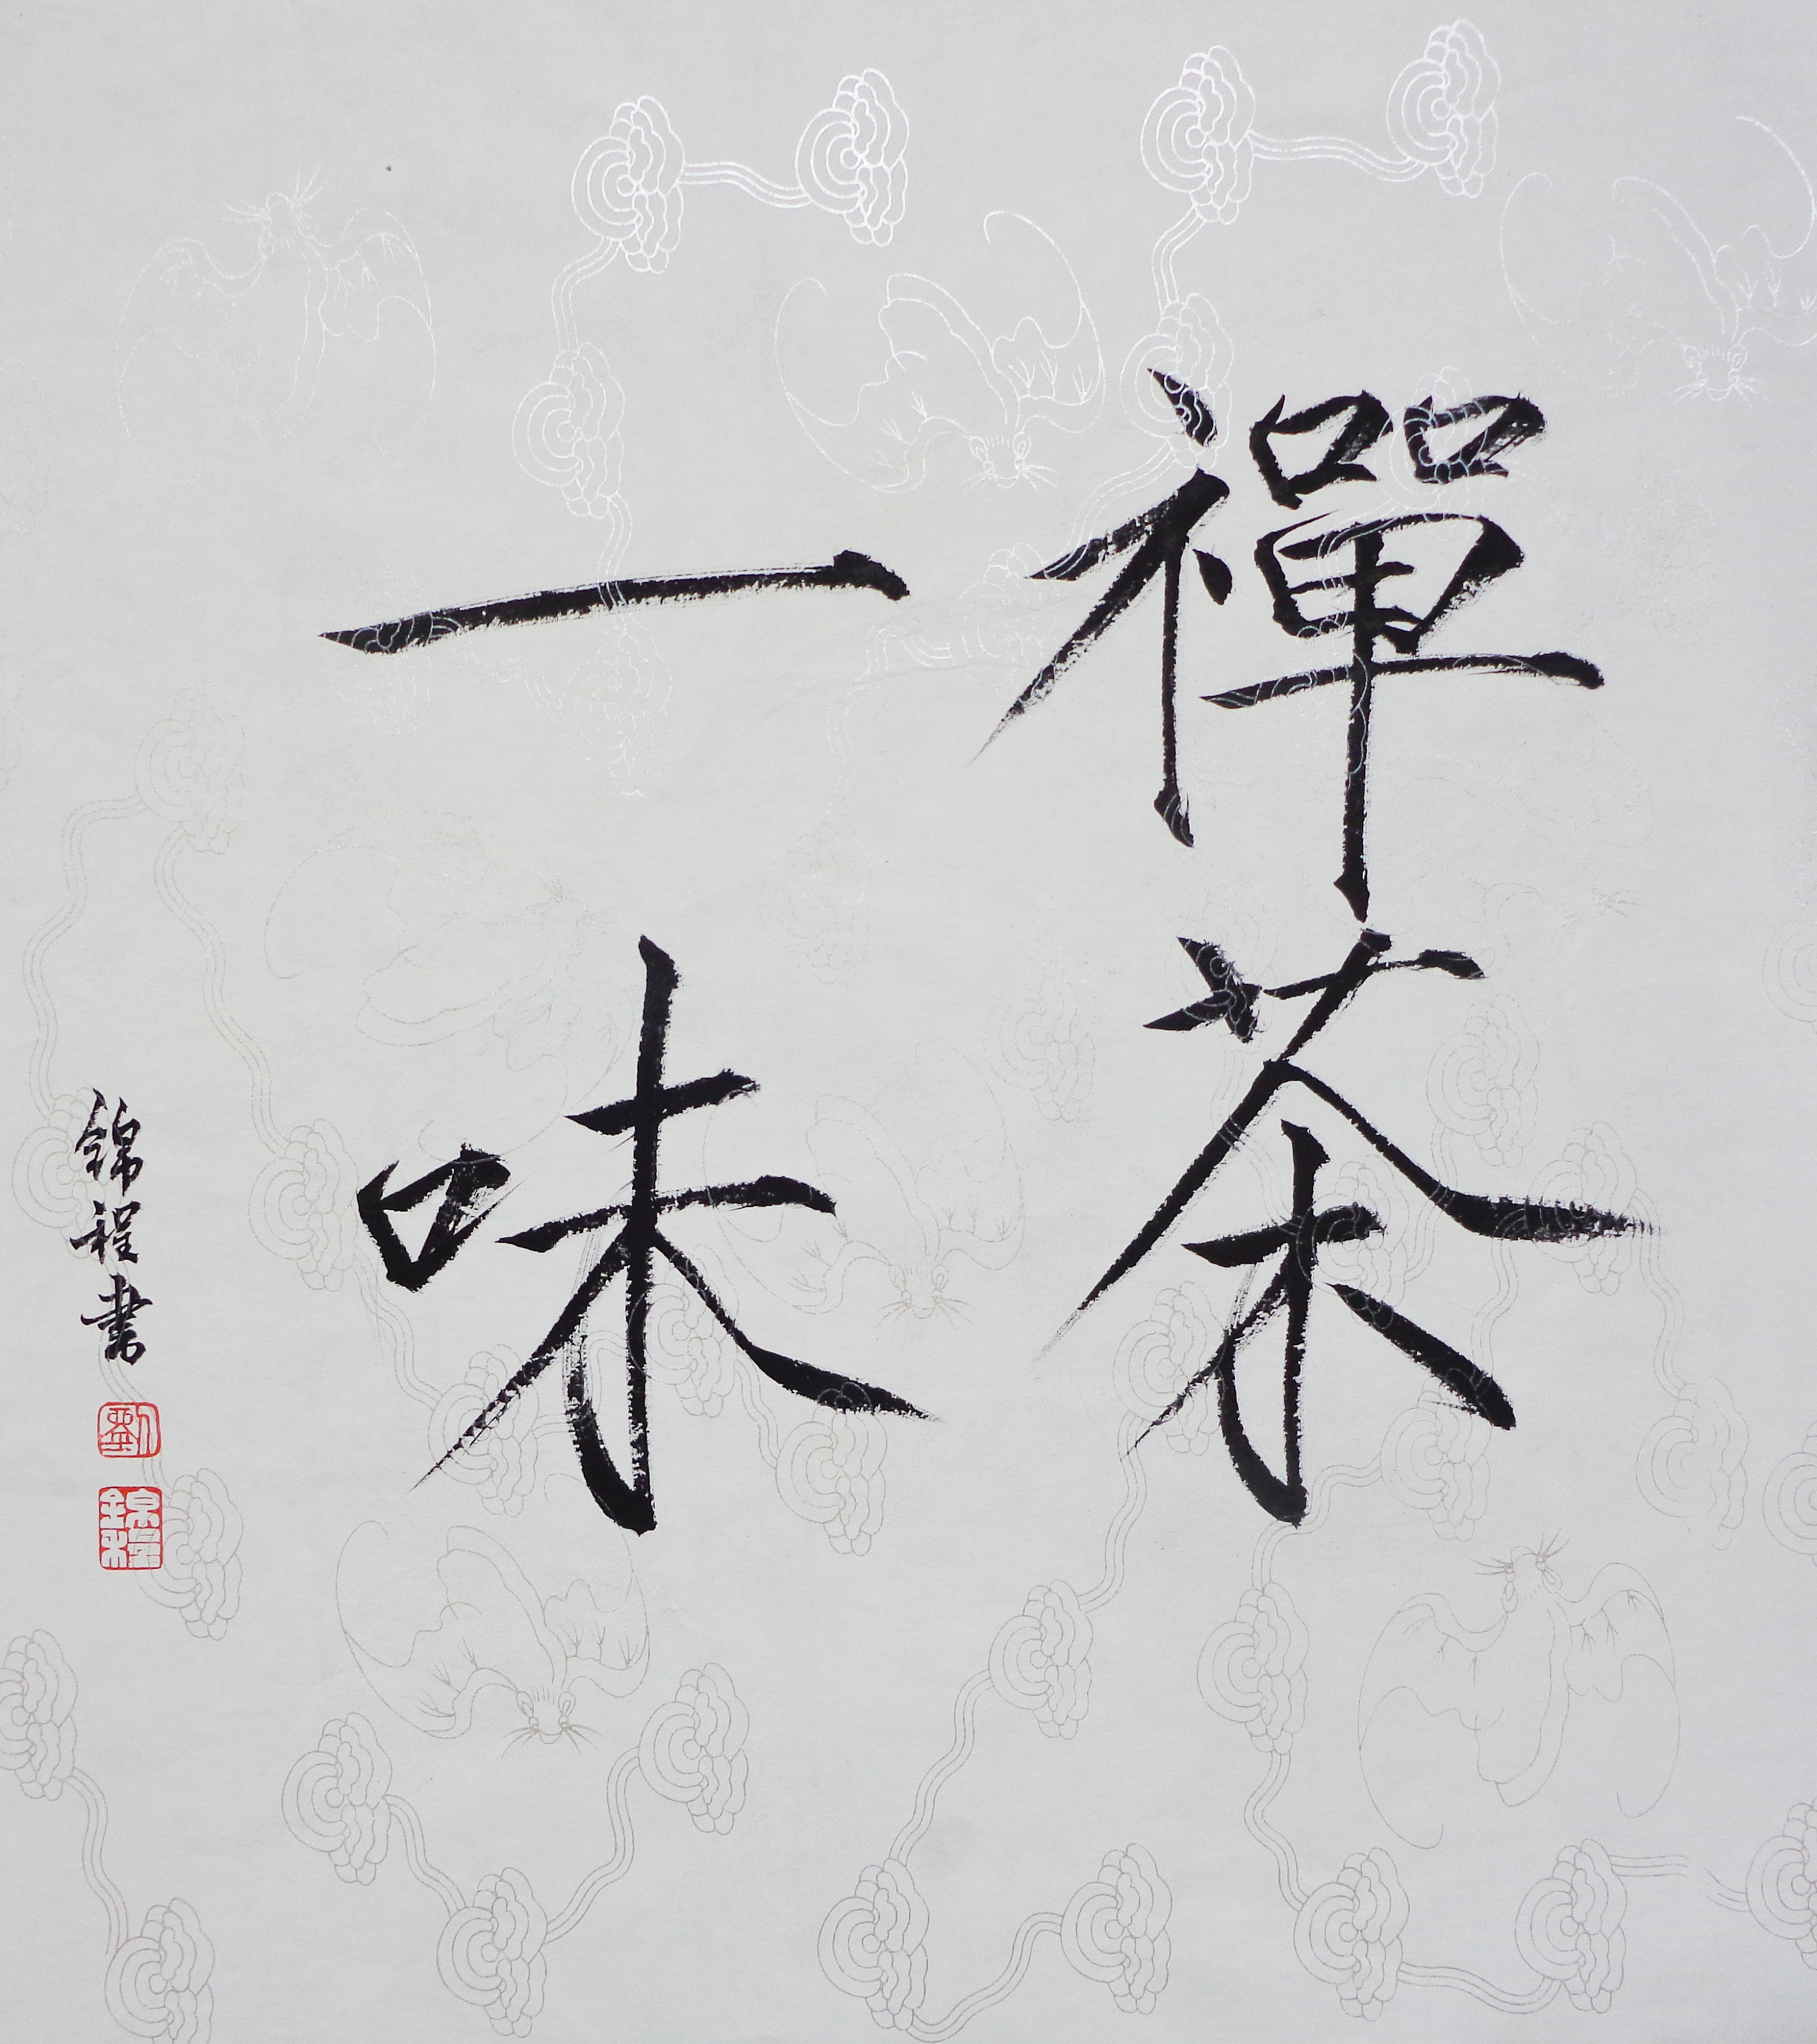 禪茶
一味
錦程書
劉
錦程